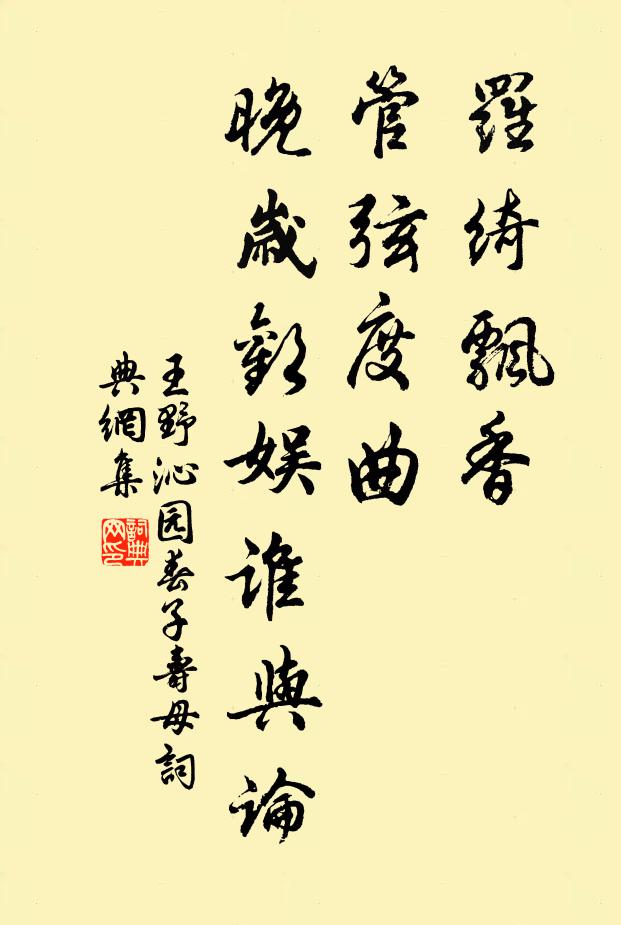 羅綺飄香
管弦度曲
晚歲歡娛誰與論
王野沁园春子壽母詞
典網集
詞典網印